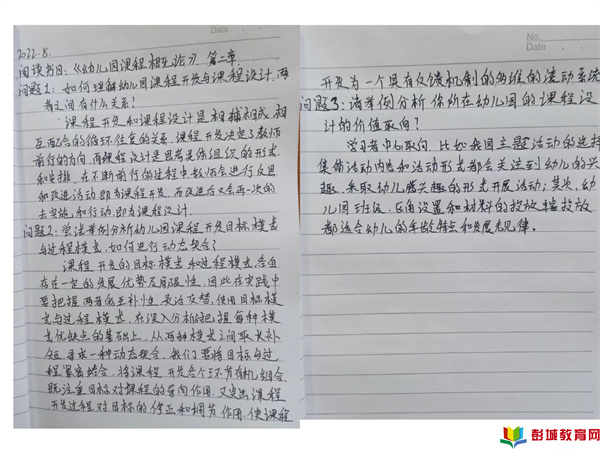 Date
2022.8.
阅读书目:《幼儿园课程概论》第二章
问题1:如何理解幼儿园课程开发与课程设计,两
者之间有什么关系?
课程开发和课程设计是相辅相成相
互配合的循环往复的关系,课程开发决定了教师
前行的方向,而课程设计是思考具体组织的形式
和安排,在不断前行的过程中教师会进行反思
和改进活动即为课程开发,而改进后又会再一次的
去实施和行动,即为课程设计.
问题2:尝试举例分析幼儿园课程开发目标模式
与过程模式,如何进行动态契合?
课程开发的目标模式和过程模式,各自
存在一定的发展优势及局限性,因此在实践中
要把握两者的互补性灵活交替,使用目标模
式与过程模式,在深入分析的把握每种模
式优缺点的基础上,从两种模式之间取长补
短,寻求一种动态契合,我们要将目标与过
程紧密结合,将课程开发各个环节有机组合,
既注重目标对课程的导向作用,又突出课程
开发过程对目标的修正和调节作用,使课程
No.
Date
开发为一个具有反馈机制的多维的滚动系统
问题3:请举例分析你所在幼儿园的课程设
计的价值取向?
学习者中心取向,比如我园主题活动的选择
集体活动内容和活动形式都会关注到幼儿的兴
趣,采取幼儿感兴趣的形式开展活动;其次,幼
儿园班级,区角设置和材料的投放
都适合幼儿的年龄特点和发展规律。
彭城教育网